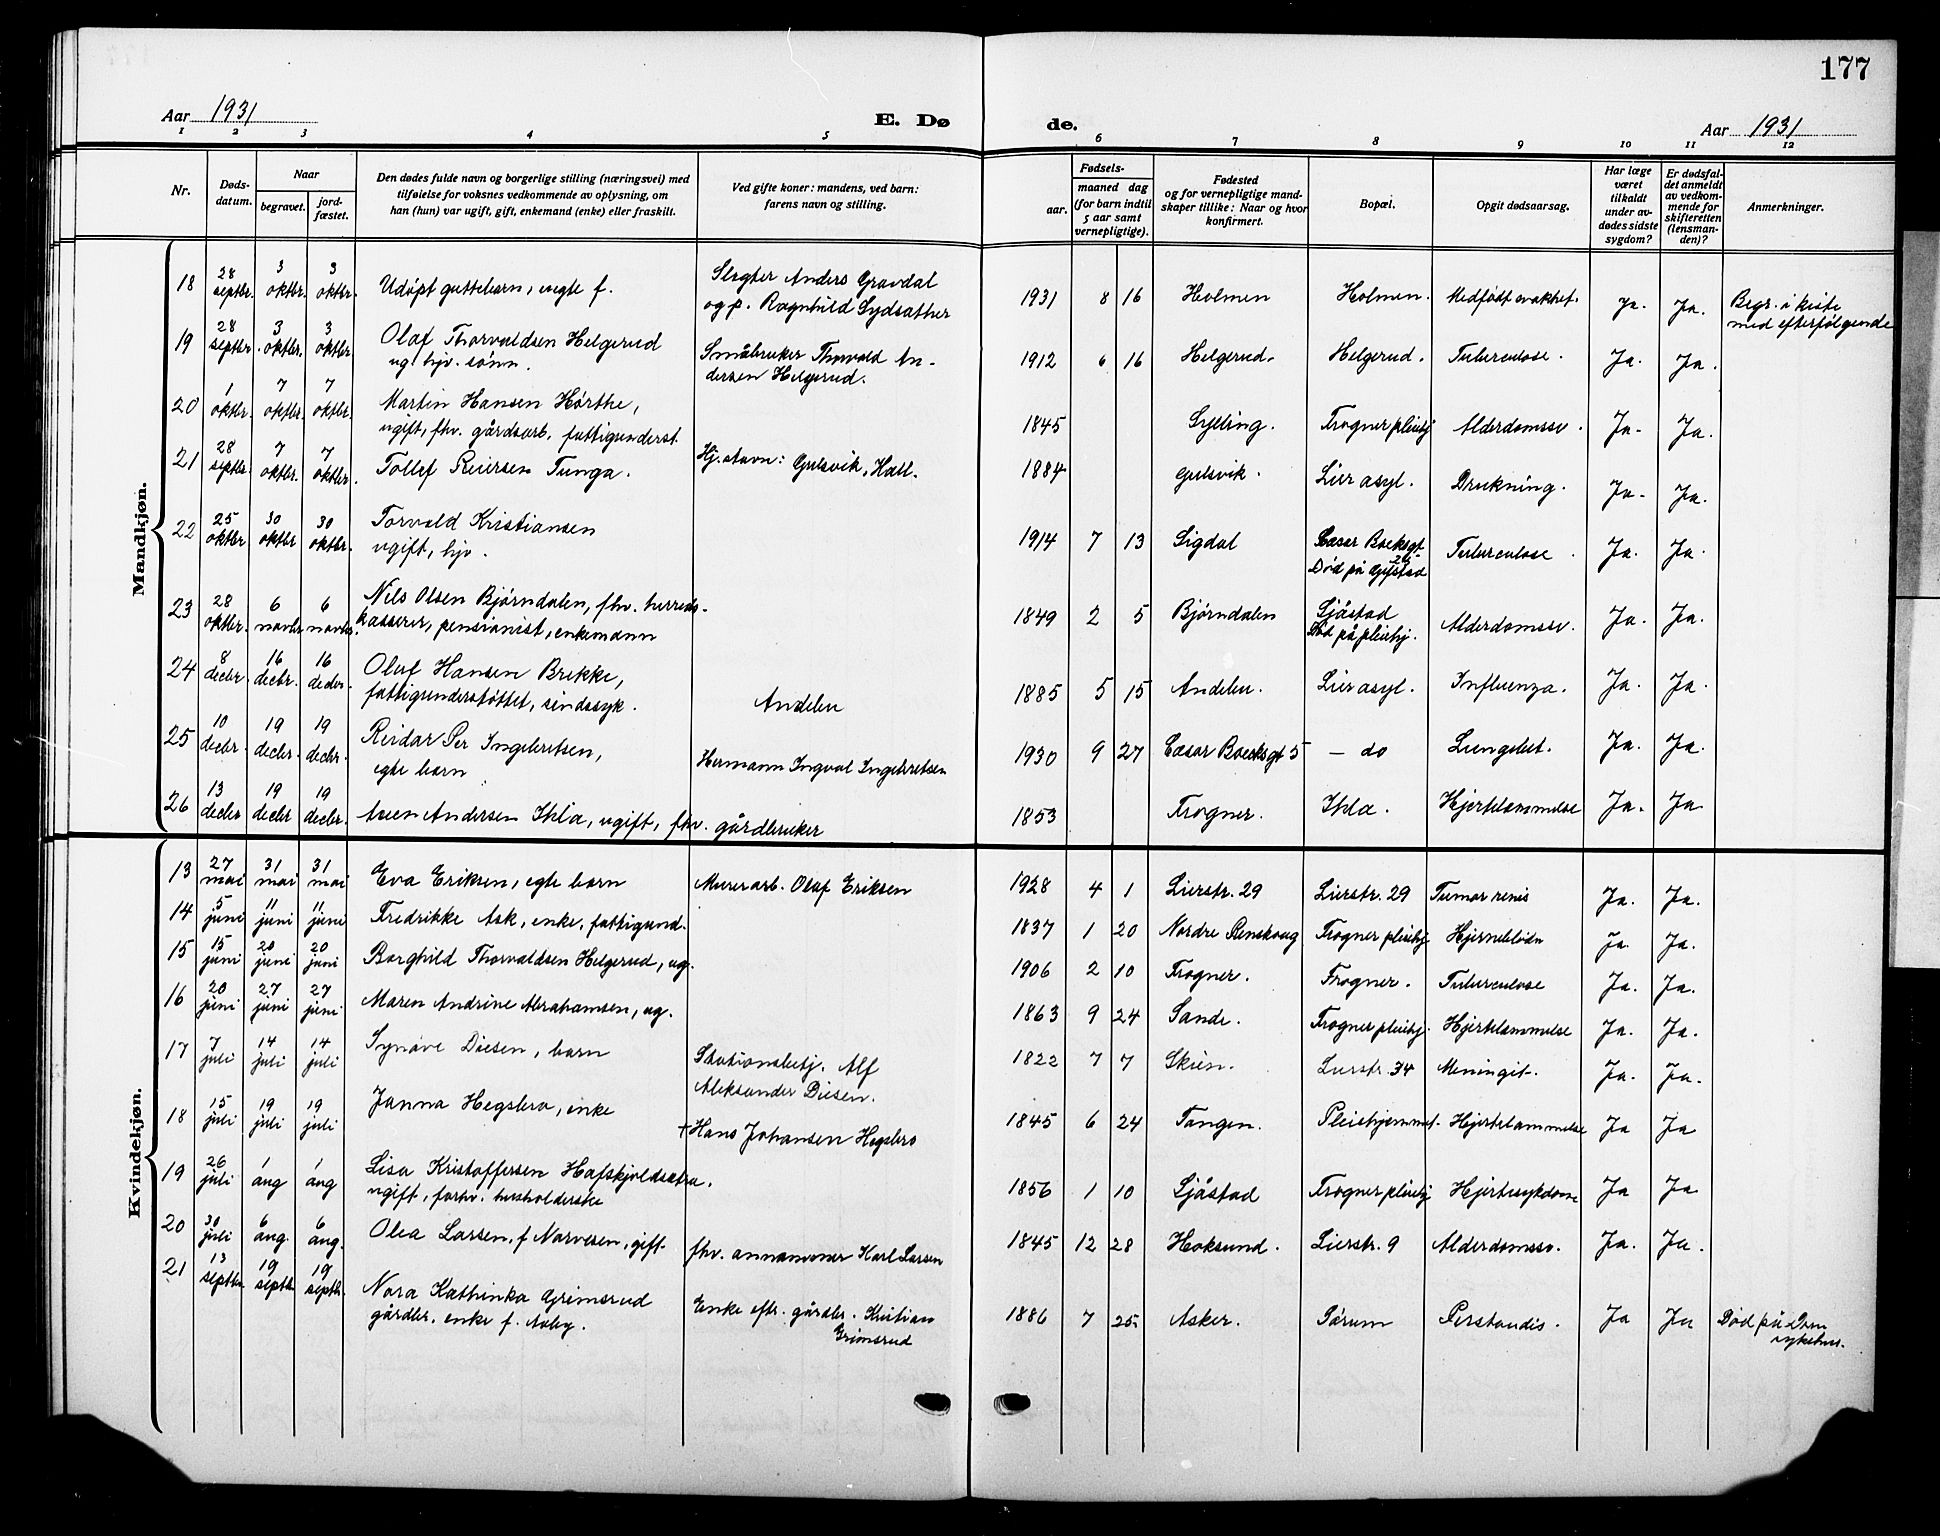 177
Aar 1931
E. Dø
de.
Aar 1931
1 2 3 4 5 6 7 8 9 10 11 12
Nr.
Døds-
datum.
Naar
begravet.
jord-
fæstet.
Den dødes fulde navn og borgerlige stilling (næringsvei) med
tilføielse for voksnes vedkommende av oplysning, om
han (hun) var ugift, gift, enkemand (enke) eller fraskilt.
Ved gifte koner: mandens, ved barn:
farens navn og stilling.
Fødsels-
aar.
maaned dag
(for barn indtil
5 aar samt
vernepligtige).
Fødested
og for vernepligtige mand-
skaper tillike: Naar og hvor
konfirmert.
Bopæl.
Opgit dødsaarsag.
Har læge
været
tilkaldt
under av-
dødes sidste
sygdom?
Er dødsfal-
det anmeldt
av vedkom-
mende for
skifteretten
(lensman-
den)?
Anmerkninger.
Mandkjøn.
18 28 septbr. 3 oktbr. 3 oktbr. Udøpt guttebarn, uegte f. Slagter Anders Gravdal 1931 8 16 Holmen Holmen. Medfødt svakhet. Ja. Ja. Begr. i kiste
og p. Ragnhild Sydsæther
med efterfølgende
19 28 septbr. 3 oktbr. 3 oktbr. Olaf Thorvaldsen Helgerud Småbruker Thorvald An- 1912 6 16 Helgerud. Helgerud. Tuberculose. Ja. Ja.
ug. hjv. sønn.
dersen Helgerud.
20 1 oktbr. 7 oktbr. 7 oktbr. Martin Hansen Hørthe, 1845 Sylling. Frogner pleiehj Alderdomssv. Ja. Ja.
ugift, fhv. gårdsarb. fattigunderst.
21 28 septbr. 7 oktbr. 7 oktbr. Tollef Reiersen Tunga. Hj.stavn: Gulsvik, Hall. 1884 Gulsvik. Lier asyl. Drukning. Ja. Ja.
22 25 oktbr. 30 oktbr 30 oktbr. Torvald Kristiansen 1914 7 13 Sigdal Cæsar Boeksgt 26 Tuberculose. Ja. Ja.
ugift, hjv.
Død på Gjfstad
23 28 oktbr. 6 novbr. 6 novbr. Nils Olsen Bjørndalen, fhv. herreds- 1849 2 5 Bjørndalen Sjåstad Alderdomssv. Ja. Ja.
kasserer, pensionist, enkemann
Død på pleiehj.
24 8 decbr. 16 decbr. 16 decbr. Oluf Hansen Brekke, 1885 5 15 Andelen. Lier asyl. Influenza. Ja. Ja.
fattigunderstøttet, sindssyk. Andelen
25 10 decbr. 19 decbr. 19 decbr. Reidar Per Ingebretsen, Hermann Ingval Ingebretsen 1930 9 27 Cæsar Boecksgt 5 — do Lungebet. Ja. Ja.
egte barn
26 13 decbr 19 decbr 19 decbr. Andersen Ihla, ugift, fhv. gårdbruker 1853 Frogner. Ihla. Hjertelammelse Ja. Ja
Kvindekjøn.
13 27 mai 31 mai 31 mai Eva Eriksen, egte barn Murerarb. Olaf Eriksen 1928 4 1 Lierstr. 29 Lierstr. 29 Tumor renis Ja. Ja.
14 5 juni 11 juni 11 juni Fredrikke Ask, enke, fattigund. 1837 1 20 Nordre Renskoug Frogner pleiehj Hjerneblødn Ja. Ja.
15 15 juni 20 juni 20 juni Borghild Thorvaldsen Helgerud, ug. 1906 2 10 Frogner. Frogner. Tuberculose Ja. Ja.
16 20 juni 27 juni 27 juni Maren Andrine Abrahamsen, ug. 1863 9 24 Sande. Frogner pleiehj. Hjertelammelse Ja. Ja.
17 7 juli 14 juli 14 juli Synøve Diesen, barn Stationsbetj. Alf 1822 7 7 Skien. Lierstr. 34 Meningit. Ja. Ja.
Aleksander Diesen.
18 15 juli 19 juli 19 juli Janna Hegsbro, enke +Hans Johansen Hegsbro 1845 6 24 Tangen. Pleiehjemmet. Hjertelammelse Ja Ja
19 26 juli 1 aug 1 aug Lisa Kristoffersen Hafskjoldsætra. 1856 1 10 Sjåstad Frogner pleiehj Hjertesykdom Ja Ja
ugift, forhv. husholderske
20 30 juli 6 aug. 6 aug. Olea Larsen, f. Narvesen, gift. fhv. annanvoner Karl Larsen 1845 12 28 Hoksund. Lierstr. 9 Alderdomssv. Ja. Ja.
21 13 septbr. 19 septb. 19 septb. Nora Kathinka Grimsrud Enke eftr. gårdbr. Kristian 1886 7 25 Asker. Sørum Ja Ja Død på Dmn
gårdbr. enke f. Aaby.
Grimsrud
sykehus.